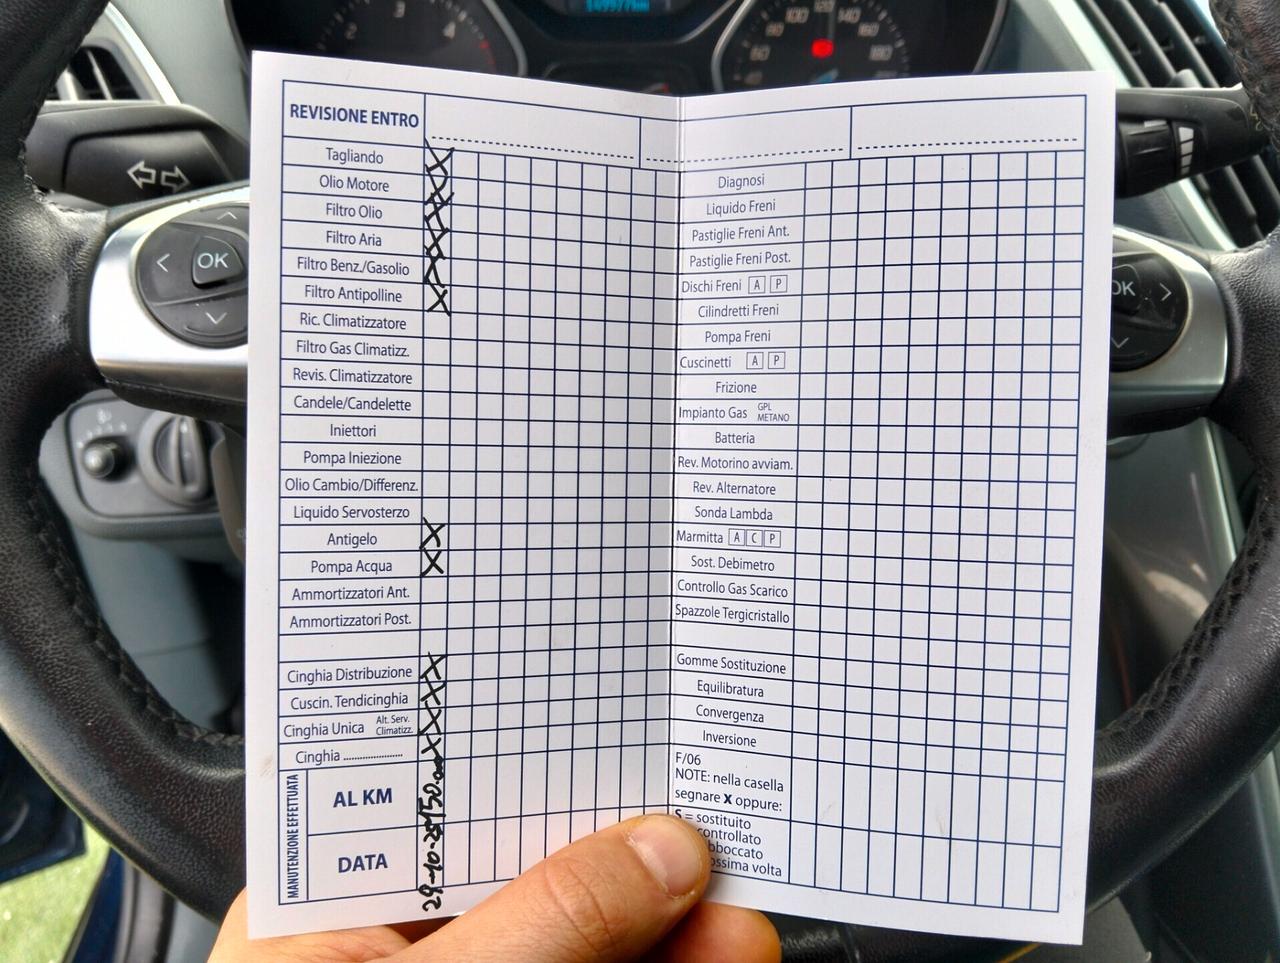 3
2
4
100
120
140
80
160
60
180
OK
OK
REVISIONE ENTRO
Tagliando X
Olio Motore X
Filtro Olio X
Filtro Aria X
Filtro Benz./Gasolio X
Filtro Antipolline X
Ric. Climatizzatore
Filtro Gas Climatizz.
Revis. Climatizzatore
Candele/Candelette
Iniettori
Pompa Iniezione
Olio Cambio/Differenz.
Liquido Servosterzo
Antigelo X
Pompa Acqua X
Ammortizzatori Ant.
Ammortizzatori Post.
Cinghia Distribuzione X
Cuscin. Tendicinghia X
Cinghia Unica Alt. Serv. Climatizz. X
Cinghia .................... X
MANUTENZIONE EFFETTUATA
AL KM
DATA
Diagnosi
Liquido Freni
Pastiglie Freni Ant.
Pastiglie Freni Post.
Dischi Freni A P
Cilindretti Freni
Pompa Freni
Cuscinetti A P
Frizione
Impianto Gas GPL METANO
Batteria
Rev. Motorino avviam.
Rev. Alternatore
Sonda Lambda
Marmitta A C P
Sost. Debimetro
Controllo Gas Scarico
Spazzole Tergicristallo
Gomme Sostituzione
Equilibratura
Convergenza
Inversione
F/06
NOTE: nella casella
segnare X oppure:
S = sostituito